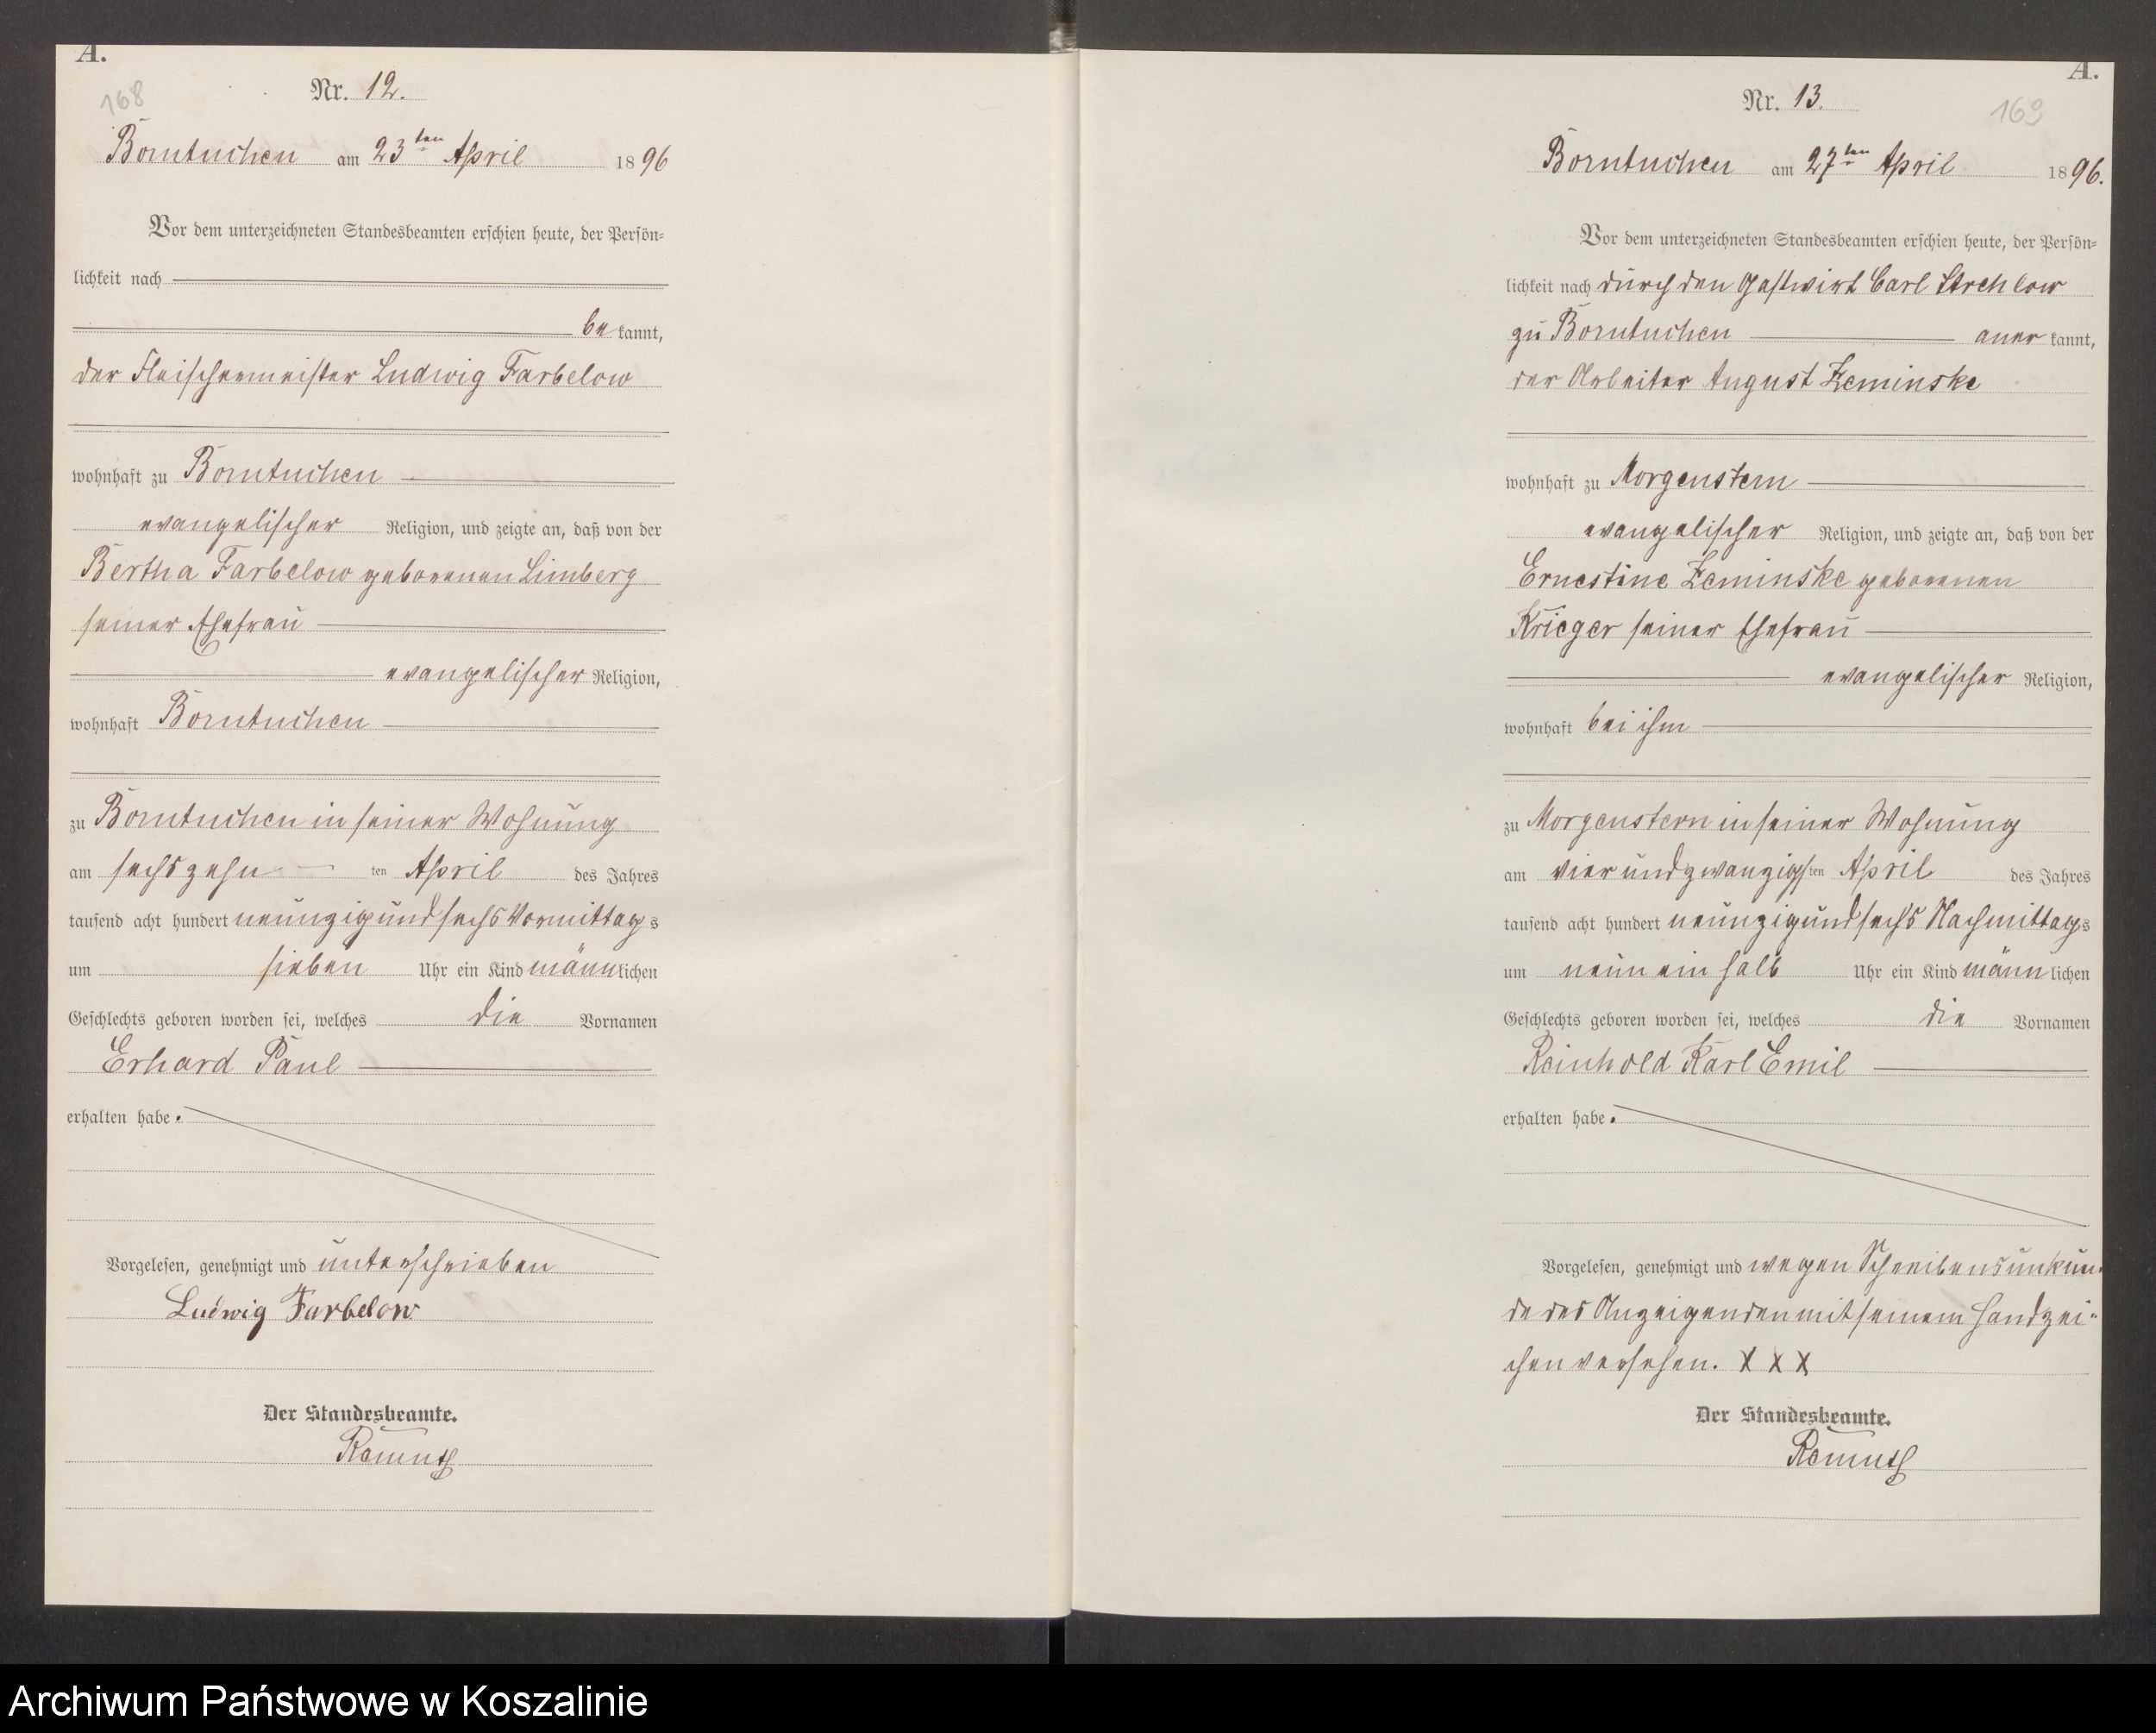 A.
168
Nr. 12.
Borntuchen am 23ten April 1896
Vor dem unterzeichneten Standesbeamten erschien heute, der Persön=
lichkeit nach
be kannt,
der Fleischermeister Ludwig Farbelow
wohnhaft zu Borntuchen
evangelischer Religion, und zeigte an, daß von der
Bertha Farbelow geborenen Limberg
seiner Ehefrau
evangelischer Religion,
wohnhaft Borntuchen
zu Borntuchen in seiner Wohnung
am sechszehn ten April des Jahres
tausend acht hundert neunzig und sechs Vormittags
um sieben Uhr ein Kind männlichen
Geschlechts geboren worden sei, welches die Vornamen
Erhard Paul
erhalten habe.
Vorgelesen, genehmigt und unterschrieben
Ludwig Farbelow
Der Standesbeamte.
A.
169
Nr. 13.
Borntuchen am 27ten April 1896.
Vor dem unterzeichneten Standesbeamten erschien heute, der Persön=
lichkeit nach durch den Gastwirt Carl Strehlow
zu Borntuchen aner kannt,
der Arbeiter August Zeminske
wohnhaft zu Morgenstern
evangelischer Religion, und zeigte an, daß von der
Ernestine Zeminske geborenen
Krieger seiner Ehefrau
evangelischer Religion,
wohnhaft bei ihm
zu Morgenstern in seiner Wohnung
am vier und zwanzigsten April des Jahres
tausend acht hundert neunzig und sechs Nachmittags
um neun ein halb Uhr ein Kind männlichen
Geschlechts geboren worden sei, welches die Vornamen
Reinhold Karl Emil
erhalten habe.
Vorgelesen, genehmigt und wegen Schreibensunkun-
de des Anzeigenden mit seinem Handzei-
chen versehen. X X X
Der Standesbeamte.
Archiwum Państwowe w Koszalinie